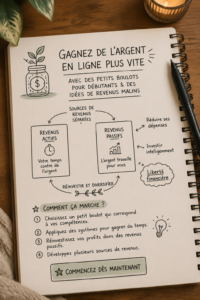 GAGNEZ DE L'ARGENT
EN LIGNE PLUS VITE
AVEC DES PETITS BOULOTS
POUR DÉBUTANTS & DES
IDÉES DE REVENUS MALINS
SOURCES DE
REVENUS
SÉPARÉES
REVENUS
ACTIFS
Votre temps
contre de
l'argent
REVENUS
PASSIFS
L'argent travaille
pour vous.
Réduire ses
dépenses
Investir
intelligemment
Liberté
financière
RÉINVESTIR ET DIVERSIFIER
COMMENT ÇA MARCHE ?
1 Choisissez un petit boulot qui correspond
à vos compétences.
2 Appliquez des systèmes pour gagner du temps.
3 Réinvestissez vos profits dans des revenus
passifs.
4 Développez plusieurs sources de revenus.
COMMENCEZ DÈS MAINTENANT